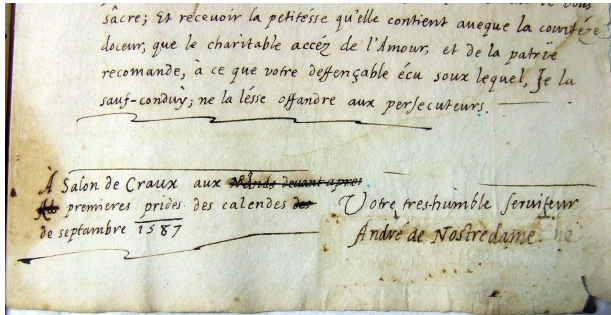 sâcre; Et receuoir la petitésse qu'elle contient aueque la courtéze
doceur, que le charitable accéz de l'Amour, et de la patrïe
recomande, à ce que votre deffençable écu soux lequel, Je la
sauf-conduÿ; ne la lésse offandre aux persecuteurs.
À Salon de Craux aux
premieres prides des calendes des
de septambre 1587
Votre tres-humble seruiteur
André de Nostredame.